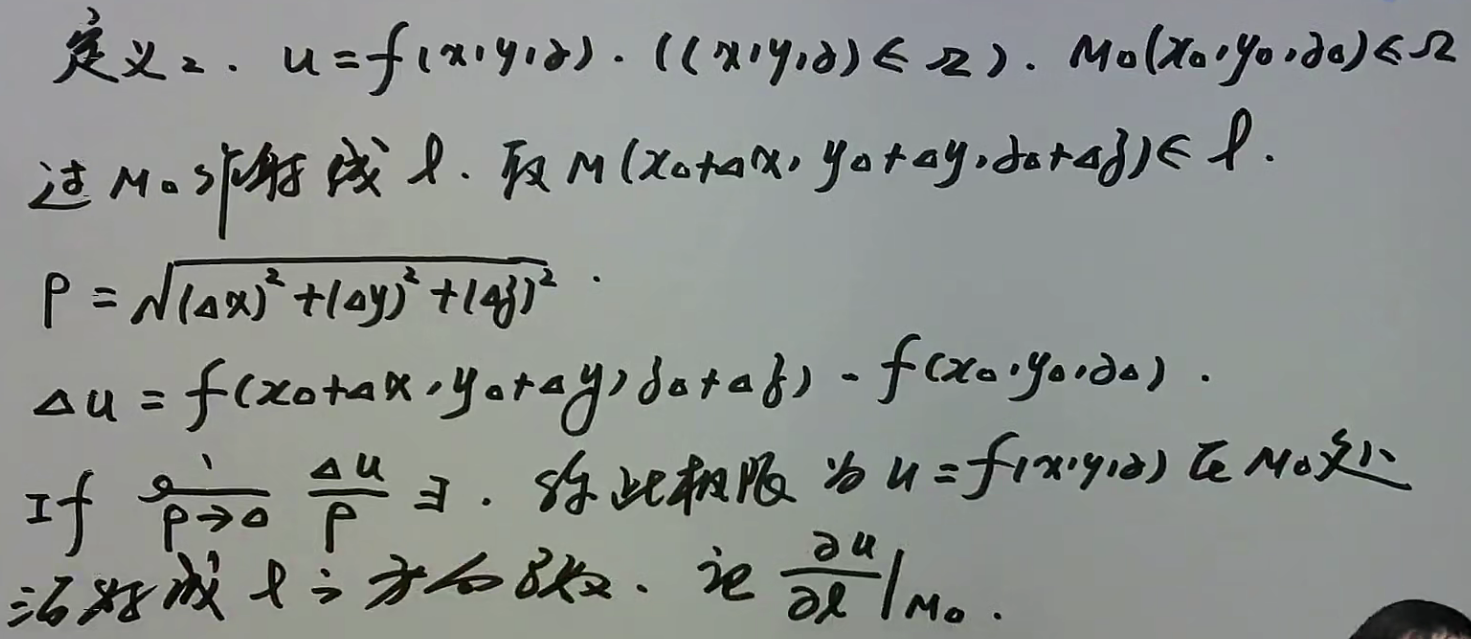 定义2. u=f(x,y,z). ((x,y,z)∈Ω). M₀(x₀,y₀,z₀)∈Ω
过M₀作射线l. 取M(x₀+Δx, y₀+Δy, z₀+Δz)∈l.
ρ=√((Δx)²+(Δy)²+(Δz)²).
Δu=f(x₀+Δx, y₀+Δy, z₀+Δz)-f(x₀,y₀,z₀).
If lim ρ→0 Δu/ρ ∃. 称此极限为u=f(x,y,z)在M₀处
沿射线l之方向导数. 记 ∂u/∂l|M₀.